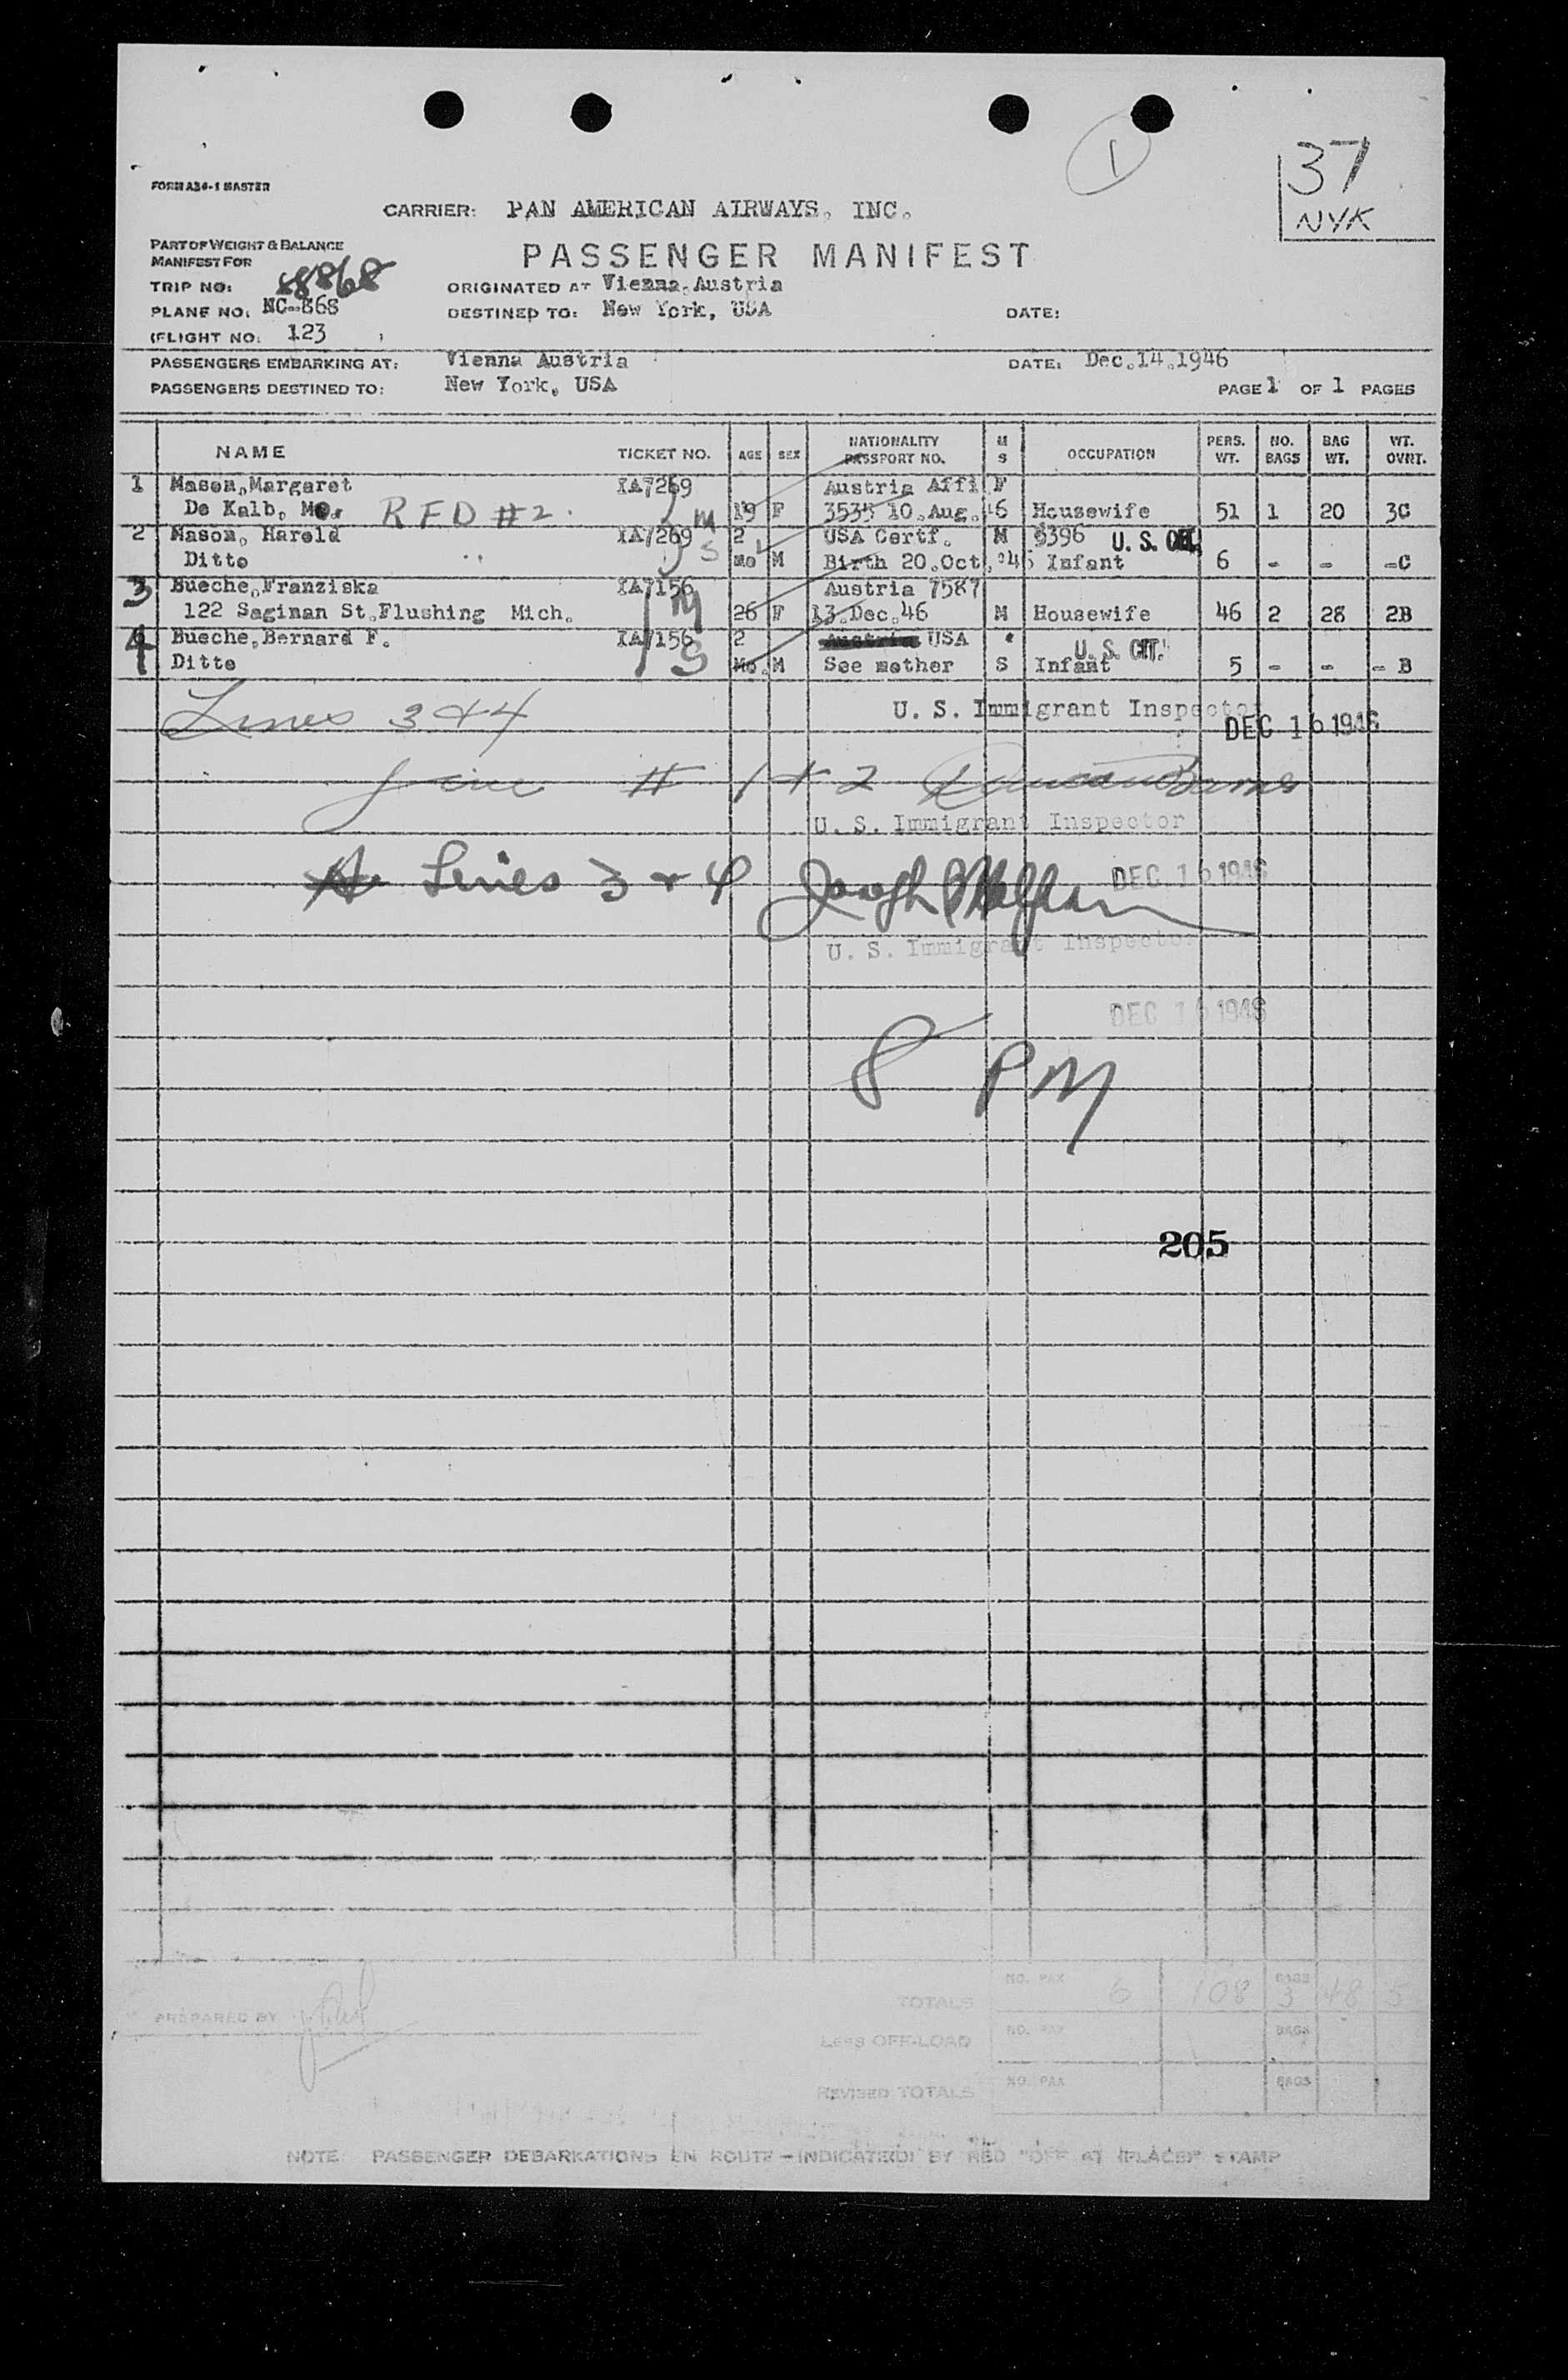 1
37
NYK
FORM A36-1 MASTER
CARRIER: PAN AMERICAN AIRWAYS, INC.
PART OF WEIGHT & BALANCE
MANIFEST FOR
PASSENGER MANIFEST
TRIP NO: 88868 ORIGINATED AT Vienna, Austria
PLANE NO: NC-868 DESTINED TO: New York, USA DATE:
(FLIGHT NO: 123
PASSENGERS EMBARKING AT: Vienna Austria DATE: Dec.14.1946
PASSENGERS DESTINED TO: New York, USA PAGE 1 OF 1 PAGES
NAME TICKET NO. AGE SEX NATIONALITY PASSPORT NO. M S OCCUPATION PERS. WT. NO. BAGS BAG WT. WT. OVRT.
1 Mason, Margaret IA7269 Austria Affi F
De Kalb, Mo. RFD #2. M 19 F 3535 10.Aug.46 Housewife 51 1 20 3C
2 Mason, Harold IA7269 2 USA Certf. M 6396 U. S. CIT.
Ditto S Mo M Birth 20.Oct.'46 Infant 6 - - -C
3 Bueche, Franziska IA7156 Austria 7587
122 Saginan St. Flushing Mich. M 26 F 13.Dec.46 M Housewife 46 2 28 2B
4 Bueche, Bernard F. IA7156 2 Austria USA U. S. CIT.
Ditto S Mo. M See mother S Infant 5 - - - B
Lines 3 & 4 U. S. Immigrant Inspector DEC 16 1946
Line # 1 & 2
U. S. Immigrant Inspector
Lines 3 & 4 DEC 16 1946
U. S. Immigrant Inspector
DEC 16 1946
8 PM
205
TOTALS NO. PAX 6 108 BAGS 3 48 5
PREPARED BY
Less OFF-LOAD NO. PAX BAGS
REVISED TOTALS NO. PAX BAGS
NOTE PASSENGER DEBARKATIONS EN ROUTE - INDICATED BY RED "OFF AT (PLACE)" STAMP